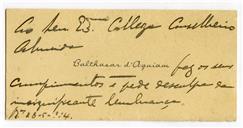 Ao Seu Exmo Collega Conselheiro
Almeida
Balthazar d'Aquiam
faz os seus
cumprimentos e pede desculpa da
insignificante lembrança.
26-5-914.